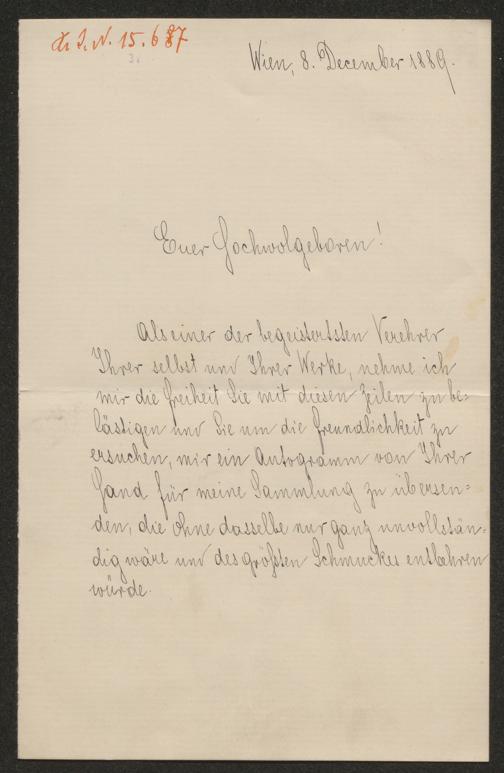 I. N. 15.687
Wien, 8. December 1889.
Euer Hochwolgeboren!
Als einer der begeistertsten Verehrer
Ihrer selbst und Ihrer Werke, nehme ich
mir die Freiheit Sie mit diesen Zeilen zu be=
lästigen und Sie um die Freundlichkeit zu
ersuchen, mir ein Autogramm von Ihrer
Hand für meine Sammlung zu übersen=
den, die ohne dasselbe nur ganz unvollstän=
dig wäre und des größten Schmuckes entbehren
würde.